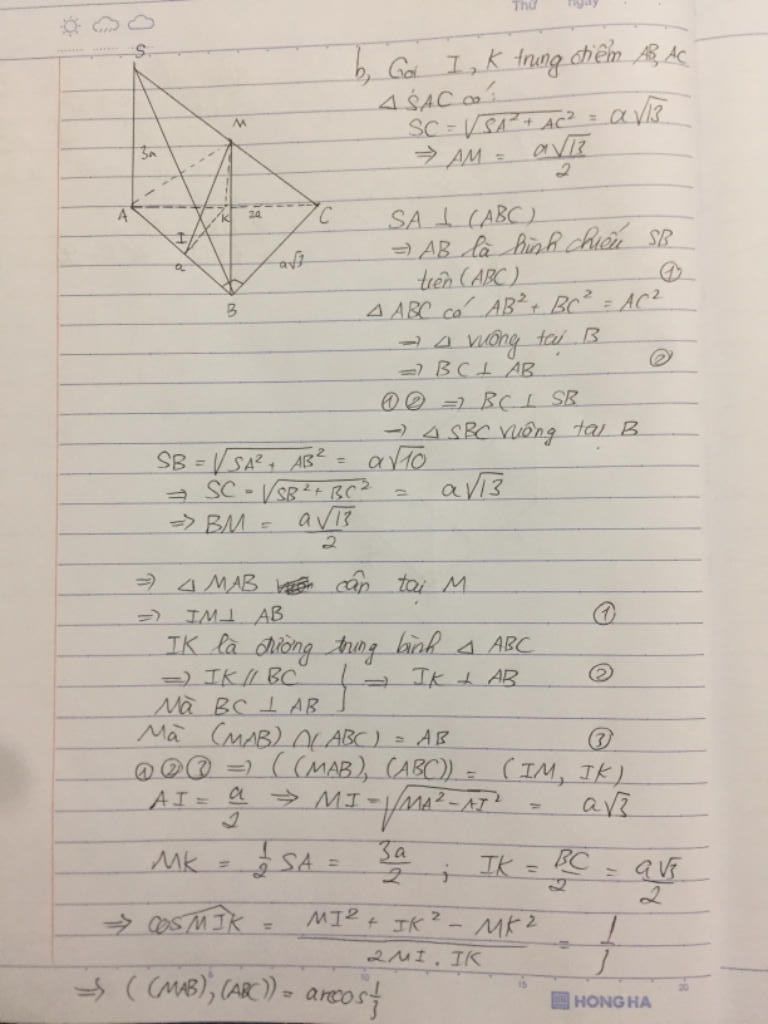 Thứ ngày
S
M
3a
A
K
2a
C
I
a
a√3
B
b, Gọi I, K trung điểm AB, AC
△ SAC có:
SC = √(SA² + AC²) = a√13
⇒ AM = a√13/2
SA ⊥ (ABC)
⇒ AB là hình chiếu SB
trên (ABC) ①
△ ABC có AB² + BC² = AC²
⇒ △ vuông tại B
⇒ BC ⊥ AB ②
①② ⇒ BC ⊥ SB
⇒ △ SBC vuông tại B
SB = √(SA² + AB²) = a√10
⇒ SC = √(SB² + BC²) = a√13
⇒ BM = a√13/2
⇒ △ MAB cân tại M
⇒ IM ⊥ AB ①
IK là đường trung bình △ ABC
⇒ IK // BC } ⇒ IK ⊥ AB ②
Mà BC ⊥ AB
Mà (MAB) ∩ (ABC) = AB ③
①②③ ⇒ ((MAB), (ABC)) = (IM, IK)
AI = a/2 ⇒ MI = √(MA² - AI²) = a√3
MK = 1/2 SA = 3a/2 ; IK = BC/2 = a√3/2
⇒ cos MIK = (MI² + IK² - MK²)/(2MI . IK) = 1/3
⇒ ((MAB), (ABC)) = arccos 1/3
10 15 20
HONG HA